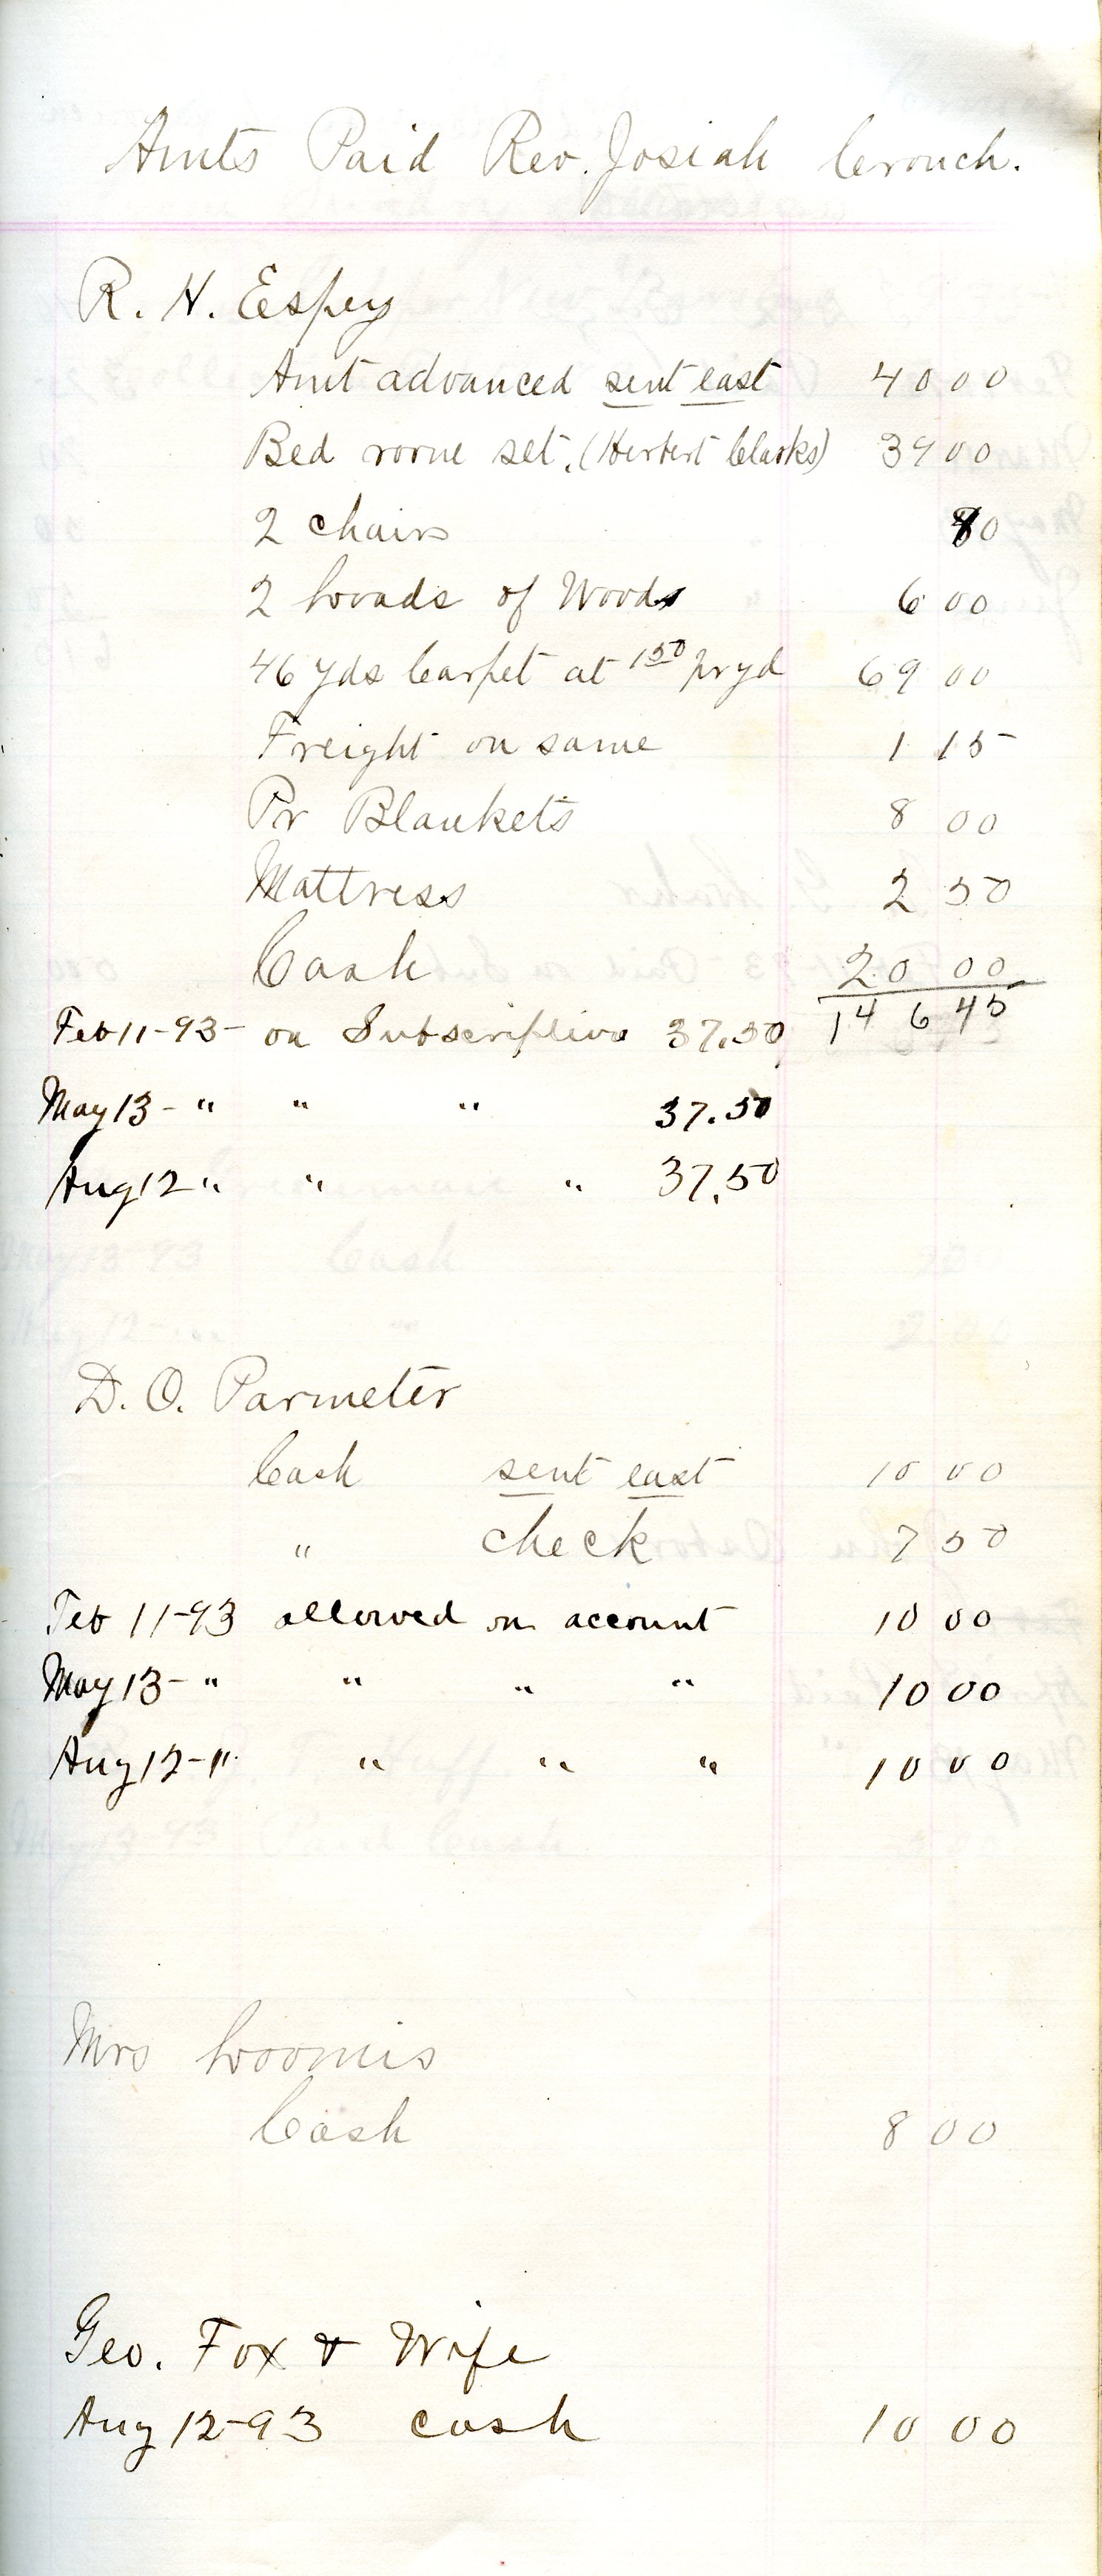 Amts Paid Rev. Josiah Crouch.
R. H. Espey
Amt advanced sent east 40 00
Bed roome set. (Herbert Clarks) 39 00
2 chairs 80
2 Loads of Wood 6 00
46 yds Carpet at 1 50 pr yd 69 00
Freight on same 1 15
Pr Blankets 8 00
Mattress 2 50
Cash 20 00
146 45
Feb 11-93- on Subscription 37.50
May 13- " " " 37.50
Aug 12 " " " 37.50
D. O. Parmeter
Cash sent east 10 00
" check 7 50
Feb 11-93 allowed on account 10 00
May 13- " " " " 10 00
Aug 12- " " " " 10 00
Mrs Loomis
Cash 8 00
Geo. Fox & Wife
Aug 12-93 cash 10 00